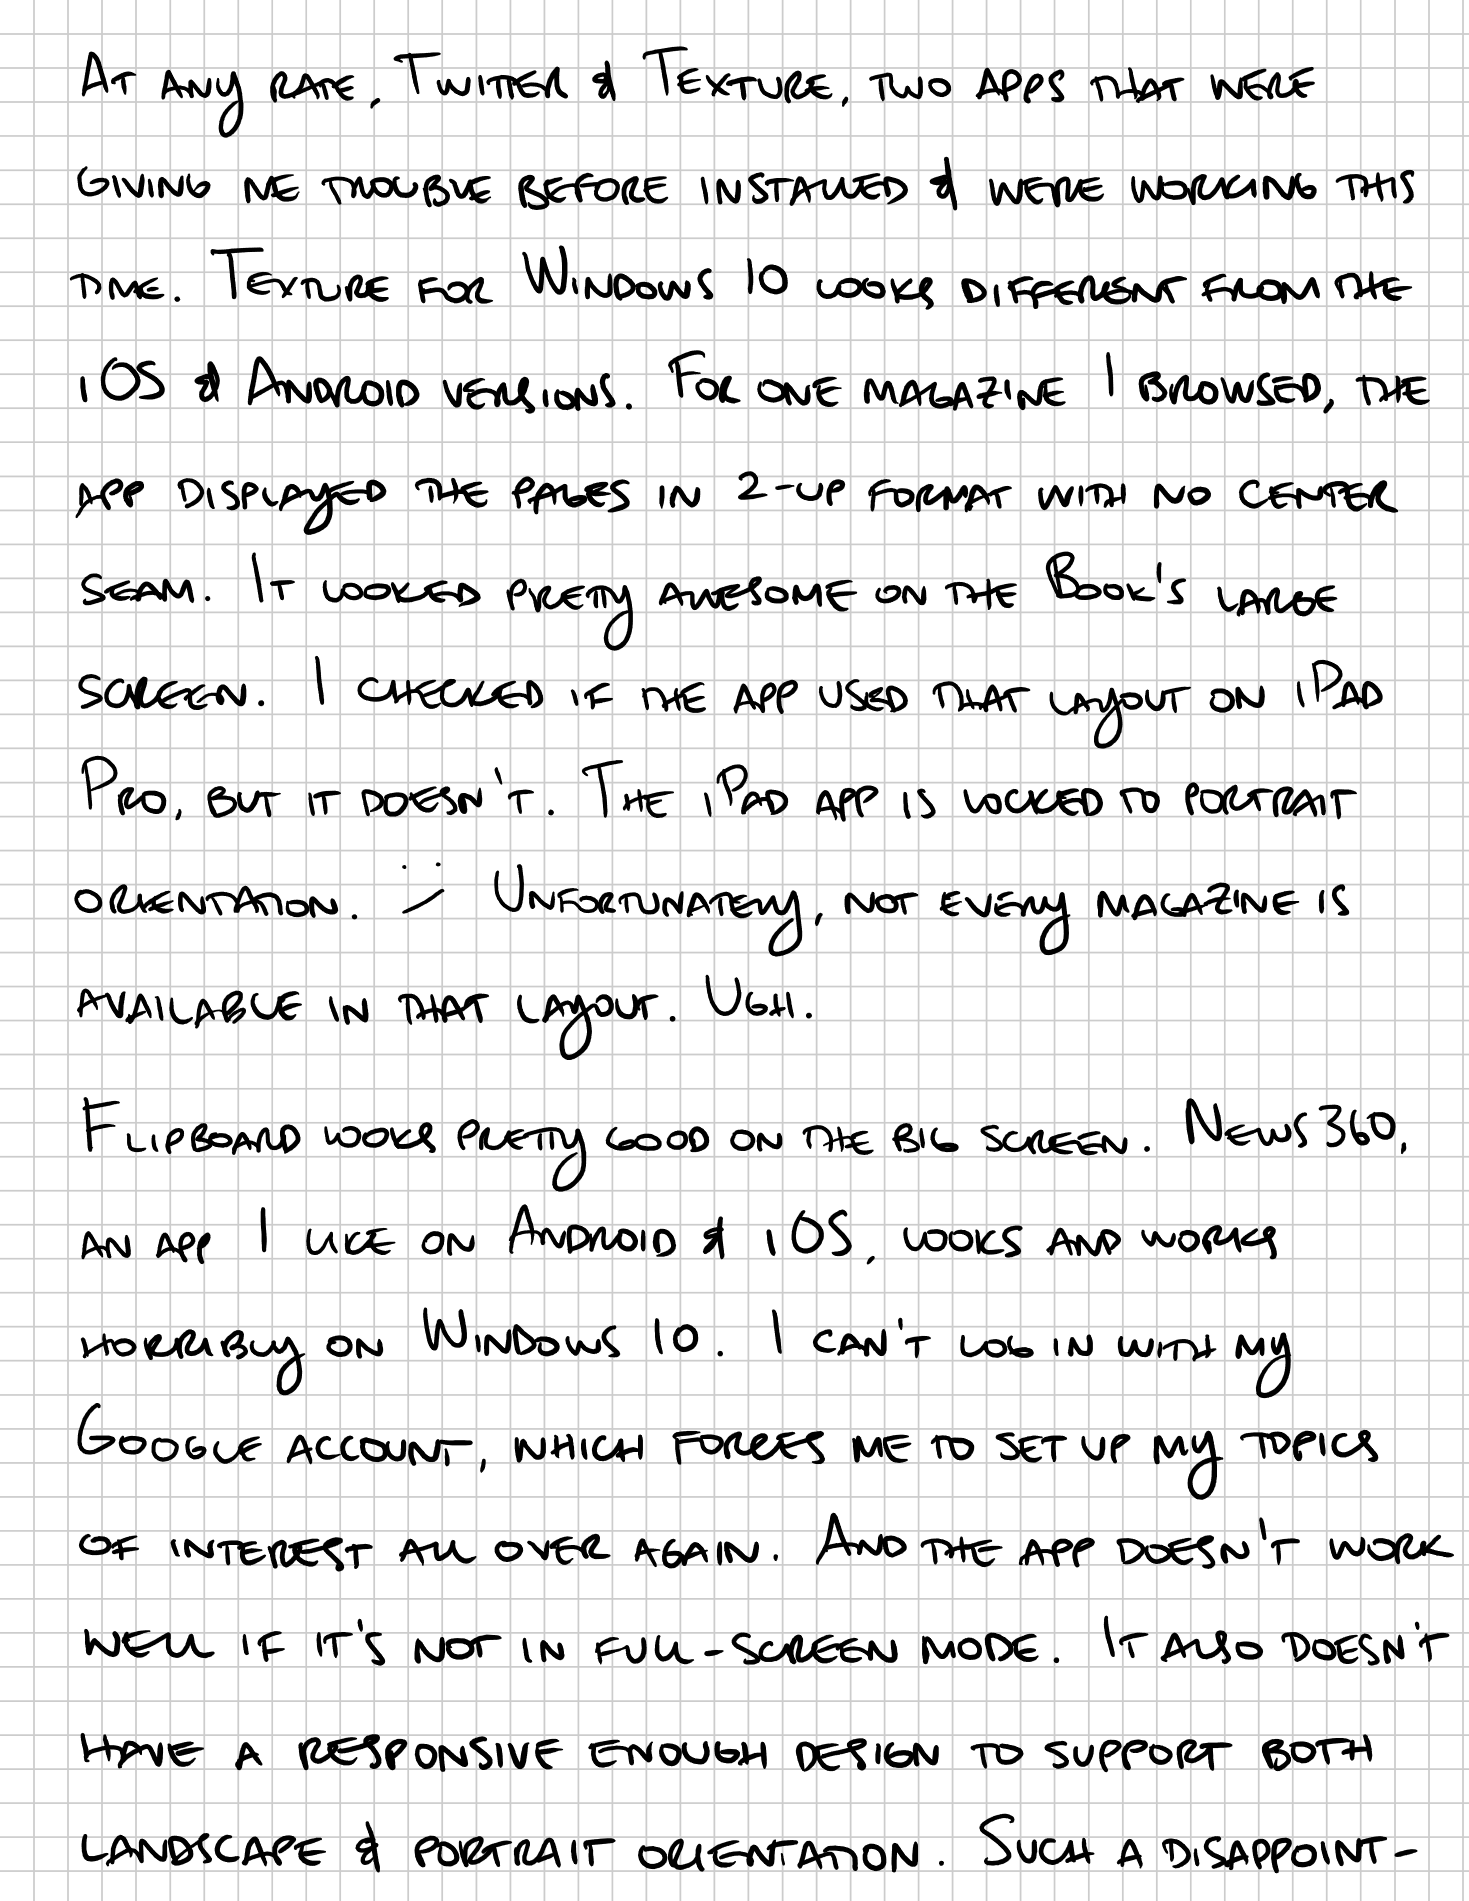 At any rate, Twitter & Texture, two apps that were
giving me trouble before installed & were working this
time. Texture for Windows 10 looks different from the
iOS & Android versions. For one magazine I browsed, the
app displayed the pages in 2-up format with no center
seam. It looked pretty awesome on the Book's large
screen. I checked if the app used that layout on iPad
Pro, but it doesn't. The iPad app is locked to portrait
orientation. :-/ Unfortunately, not every magazine is
available in that layout. Ugh.
Flipboard looks pretty good on the big screen. News360,
an app I like on Android & iOS, looks and works
horribly on Windows 10. I can't log in with my
Google account, which forces me to set up my topics
of interest all over again. And the app doesn't work
well if it's not in full-screen mode. It also doesn't
have a responsive enough design to support both
landscape & portrait orientation. Such a disappoint-